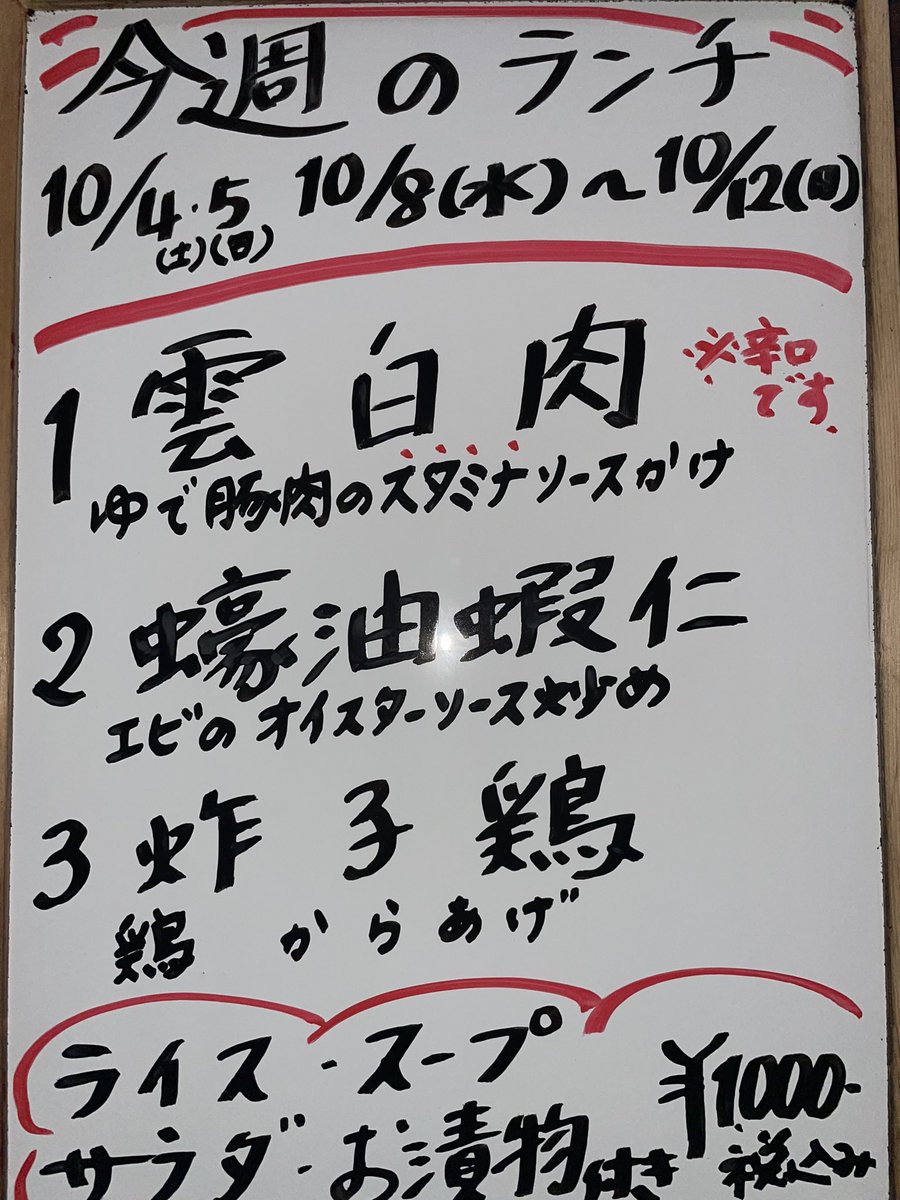 今週のランチ
10/4・5 10/8(水)〜10/12(日)
(土)(日)
1 雲白肉 ※辛口です
ゆで豚肉のスタミナソースかけ
2 蠔油蝦仁
エビのオイスターソース炒め
3 炸子鶏
鶏からあげ
ライス・スープ
サラダ・お漬物付き
¥1000-
税込み